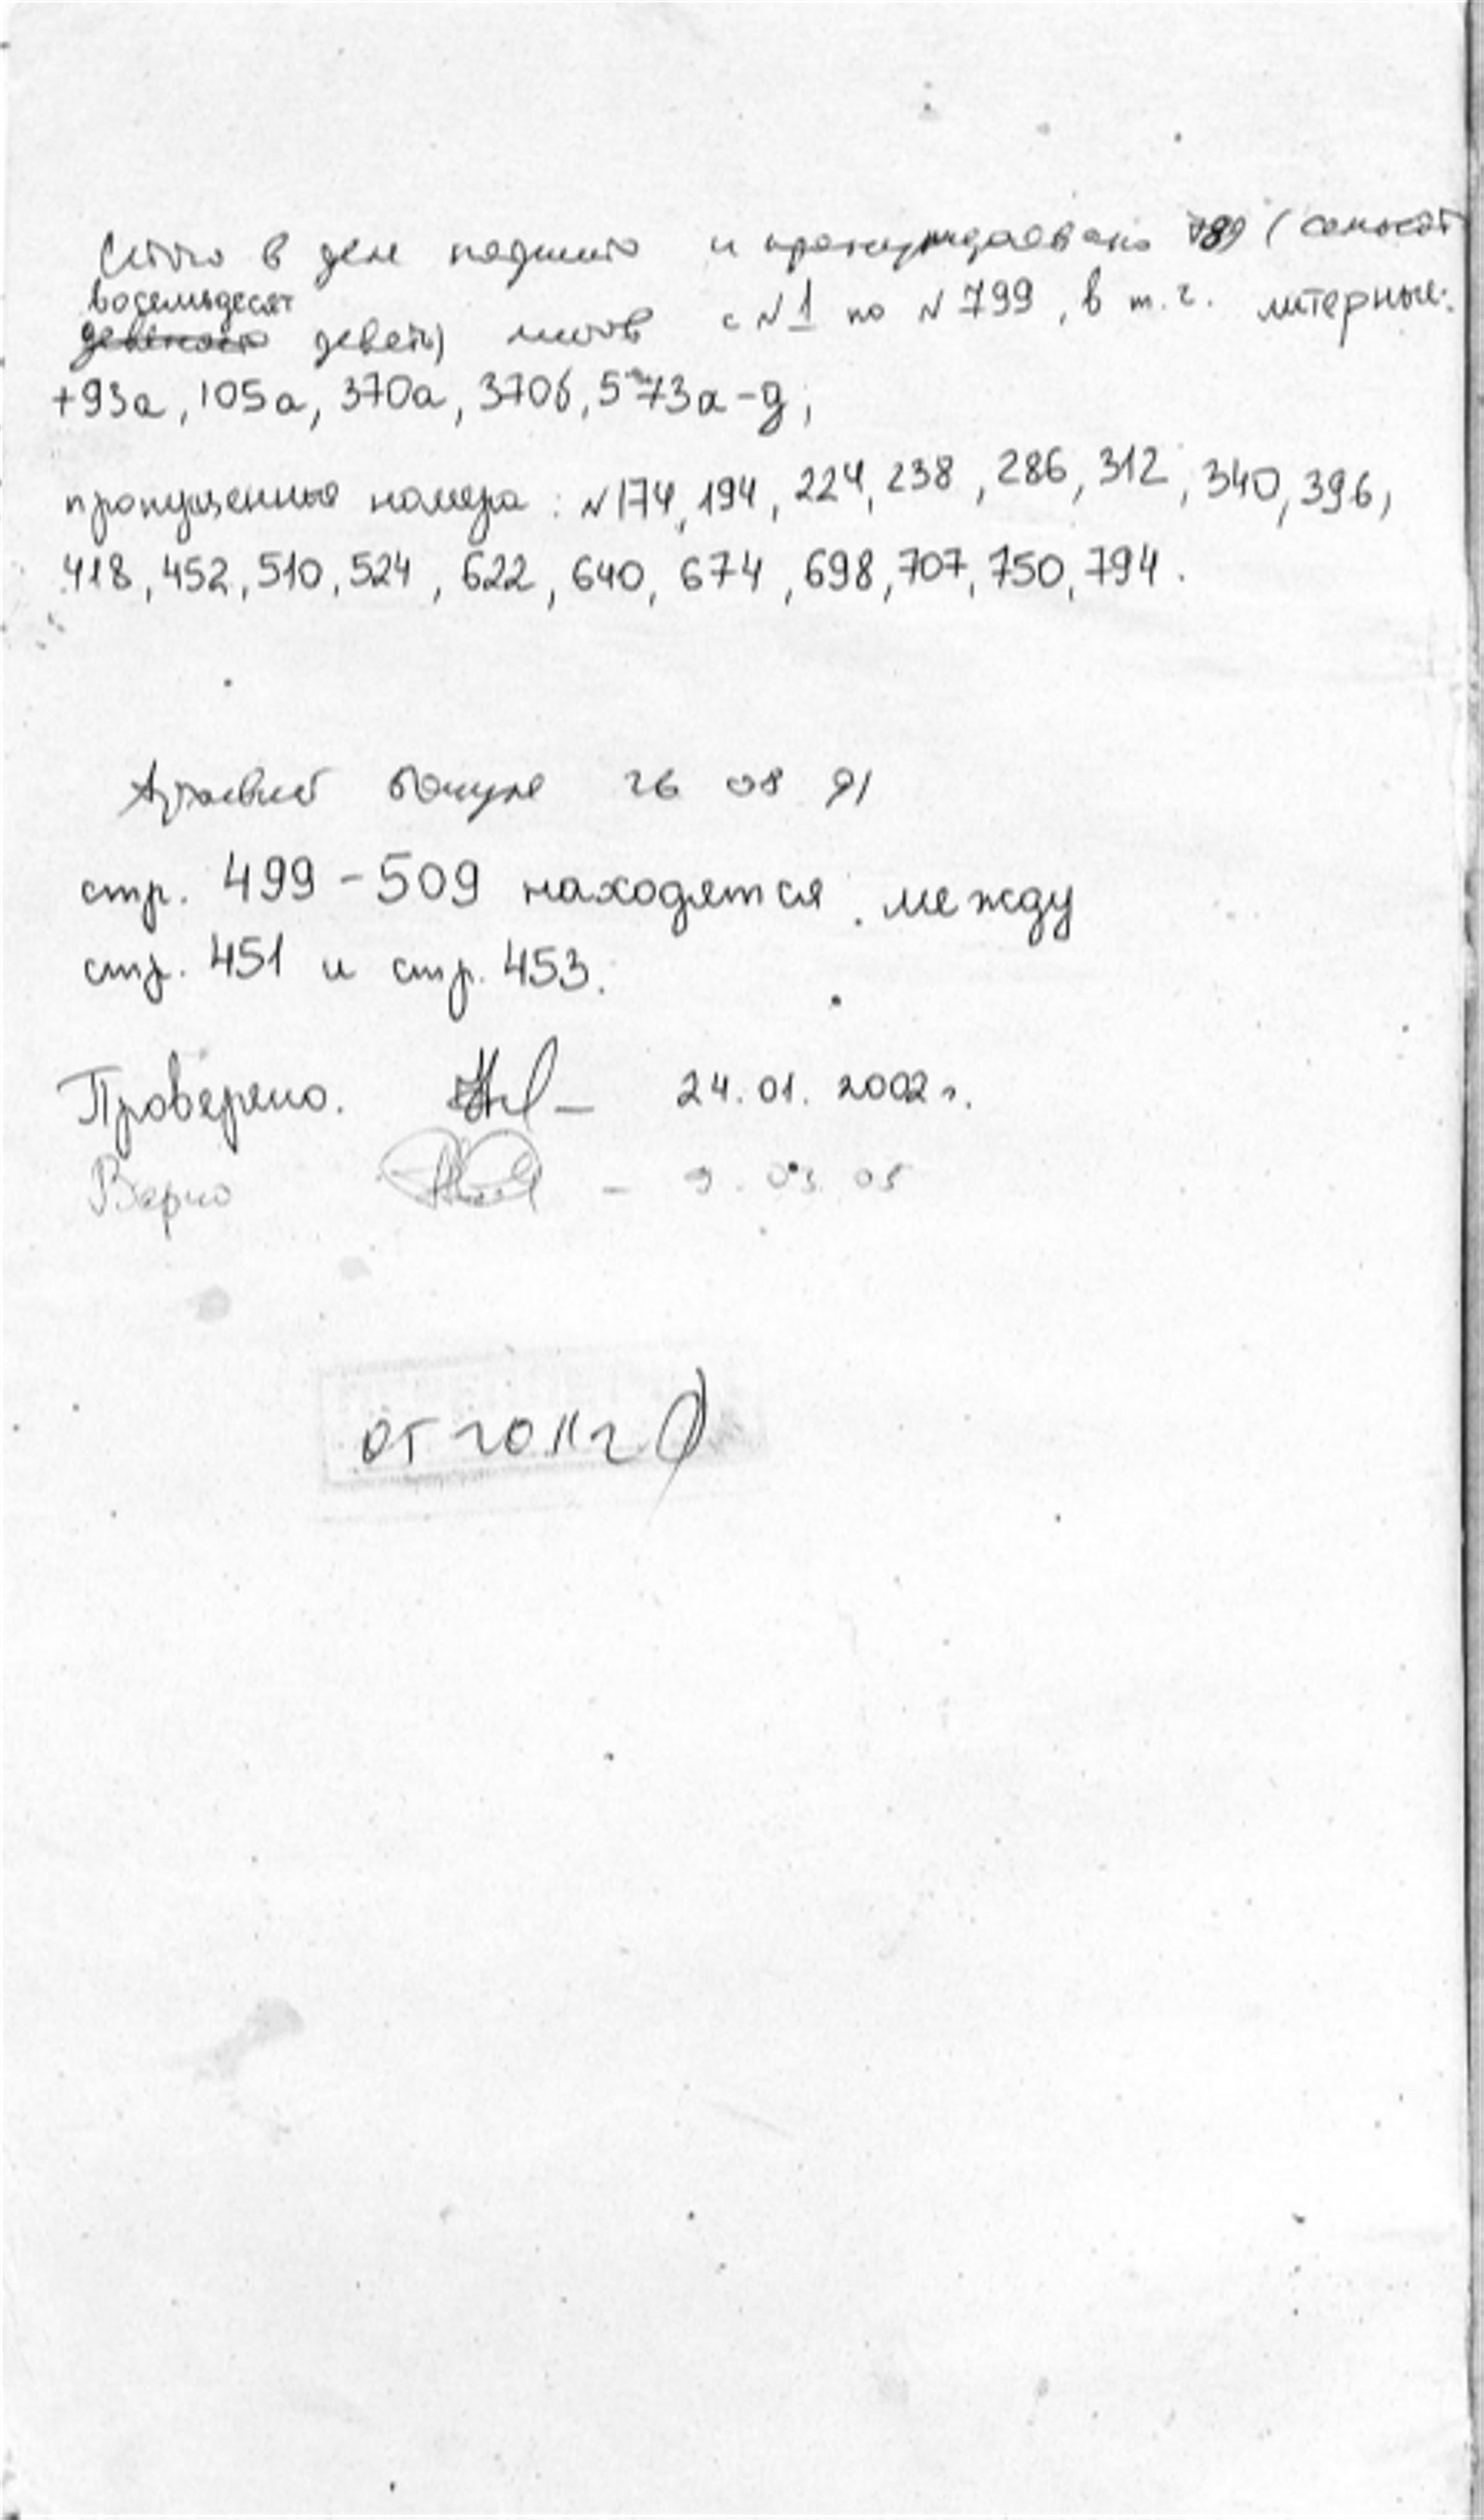 Итого в деле подшито и пронумеровано 789 (семьсот
восемьдесят
девяносто девять) листов с №1 по №799, в т.ч. литерные:
+93а, 105а, 370а, 370б, 573а-д;
пропущенные номера: №174, 194, 224, 238, 286, 312, 340, 396,
418, 452, 510, 524, 622, 640, 674, 698, 707, 750, 794.
26 08 91
стр. 499-509 находятся между
стр. 451 и стр. 453.
Проверено. 24.01.2002г.
Верно - 9.03.05